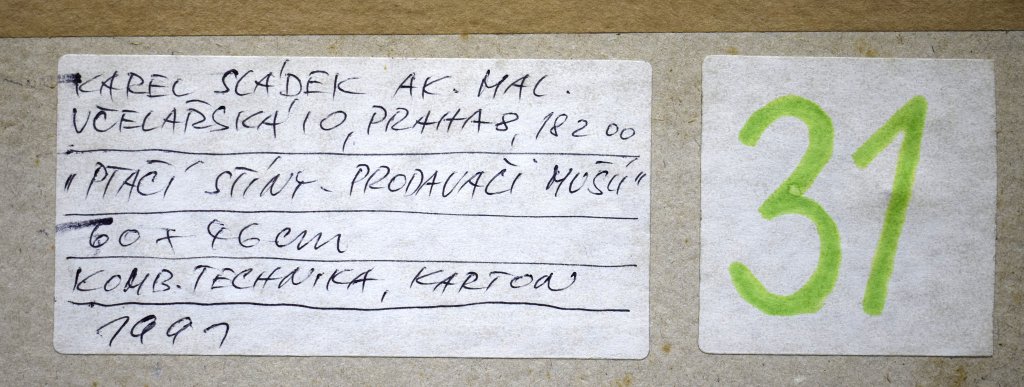 KAREL SLÁDEK AK. MAL.
VČELAŘSKÁ 10, PRAHA 8, 182 00
"PTAČÍ STÍNY - PRODAVAČI MUŠLÍ"
60 x 46 cm
KOMB. TECHNIKA, KARTON
1991
31